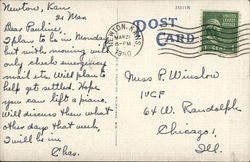 Newton, Kan
21 Mar
Dear Pauline,
I plan to be in Monday
but with moving will
only check emergency
mail etc. Will plan to
help get settled. Hope
you can lift a piano.
Will discuss then what
other days that week
I will be in.
Chas.
35511N
POST
CARD
NEWTON, KANS.
MAR 21
8-PM
1940
Miss P. Winslow
IVCF
64 W. Randolph
Chicago,
Ill.